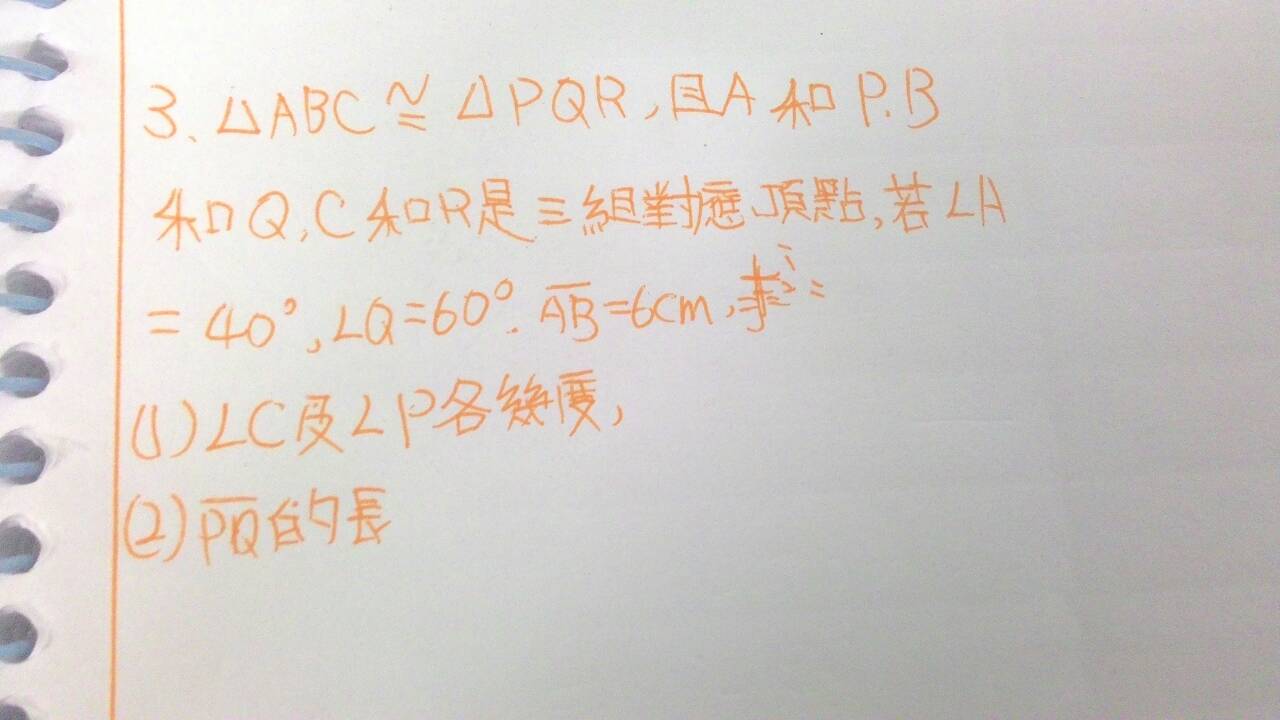 3、△ABC≅△PQR,且A和P.B
和Q,C和R是三組對應頂點,若∠A
=40°,∠Q=60°.A̅B̅=6cm,求:
(1)∠C及∠P各幾度,
(2)P̅Q̅的長